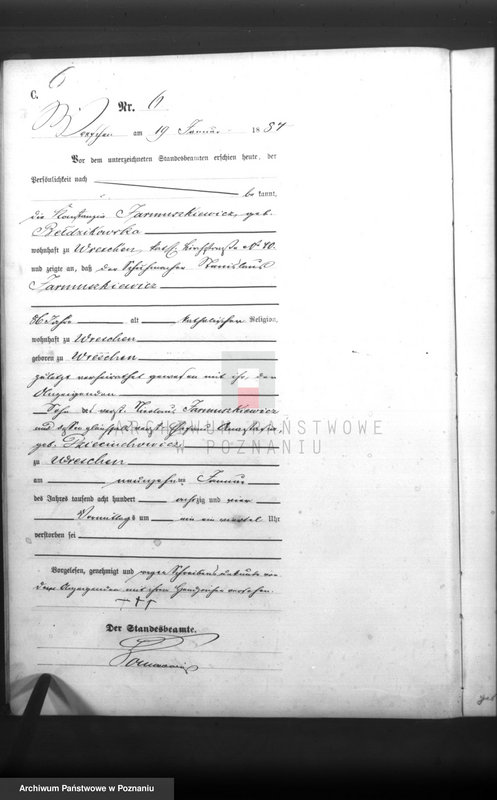 C. 6
Nr. 6
Wreschen am 19 Januar 1884
Vor dem unterzeichneten Standesbeamten erschien heute, der
Persönlichkeit nach
be kannt,
die Konstanzia Jarmuszkiewicz, geb.
wohnhaft zu Wreschen, No 40.
und zeigte an, daß der Schuhmacher Stanislaus
Jarmuszkiewicz
86 Jahre alt katholischer Religion,
wohnhaft zu Wreschen
geboren zu Wreschen
zuletzt verheirathet gewesen mit ihr, der
Anzeigenden
Sohn des verst. Nicolaus Jarmuszkiewicz
und dessen gleichfalls verst. Ehefrau Anastasia
geb.
zu Wreschen
am neunzehnten Januar
des Jahres tausend acht hundert achtzig und vier
Vormittags um ein ein viertel Uhr
verstorben sei
Vorgelesen, genehmigt und wegen Schreibensunkunde von
der Anzeigenden mit ihrem Handzeichen versehen.
+++
Der Standesbeamte.
ARCHIWUM PAŃSTWOWE
W POZNANIU
Archiwum Państwowe w Poznaniu